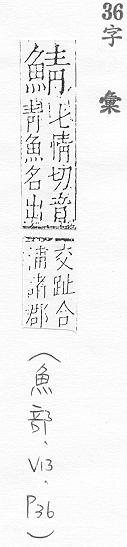 36
字彙
鯖
七情切音
青魚名出
交趾合
浦諸郡
（魚部、V13、P36）